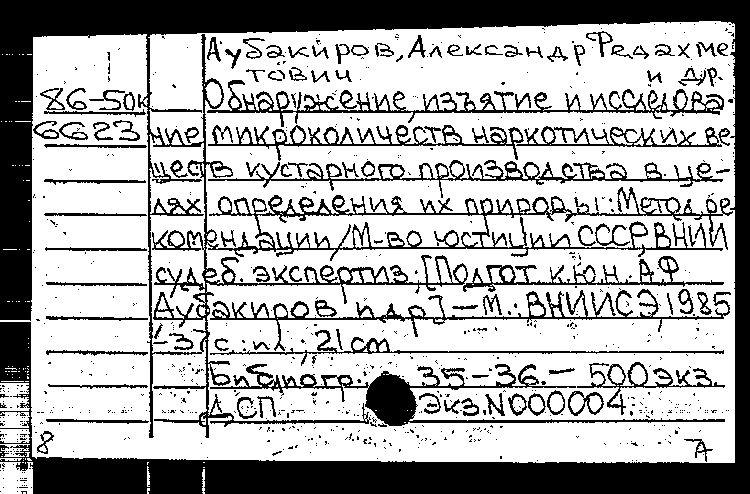 Аубакиров, Александр Федахме
тович и др.
86-50к Обнаружение, изъятие и исследова-
6623 ние микроколичеств наркотических ве-
ществ кустарного производства в це-
лях определения их природы: Метод. ре-
комендации / М-во юстиции СССР, ВНИИ
судеб. экспертиз; [Подгот. к.ю.н. А.Ф.
Аубакиров и др.] — М.: ВНИИСЭ, 1985
-37 с.: ил.; 21 cm.
Библиогр.: 35-36. — 500 экз.
ДСП. Экз. N000004.
8 А